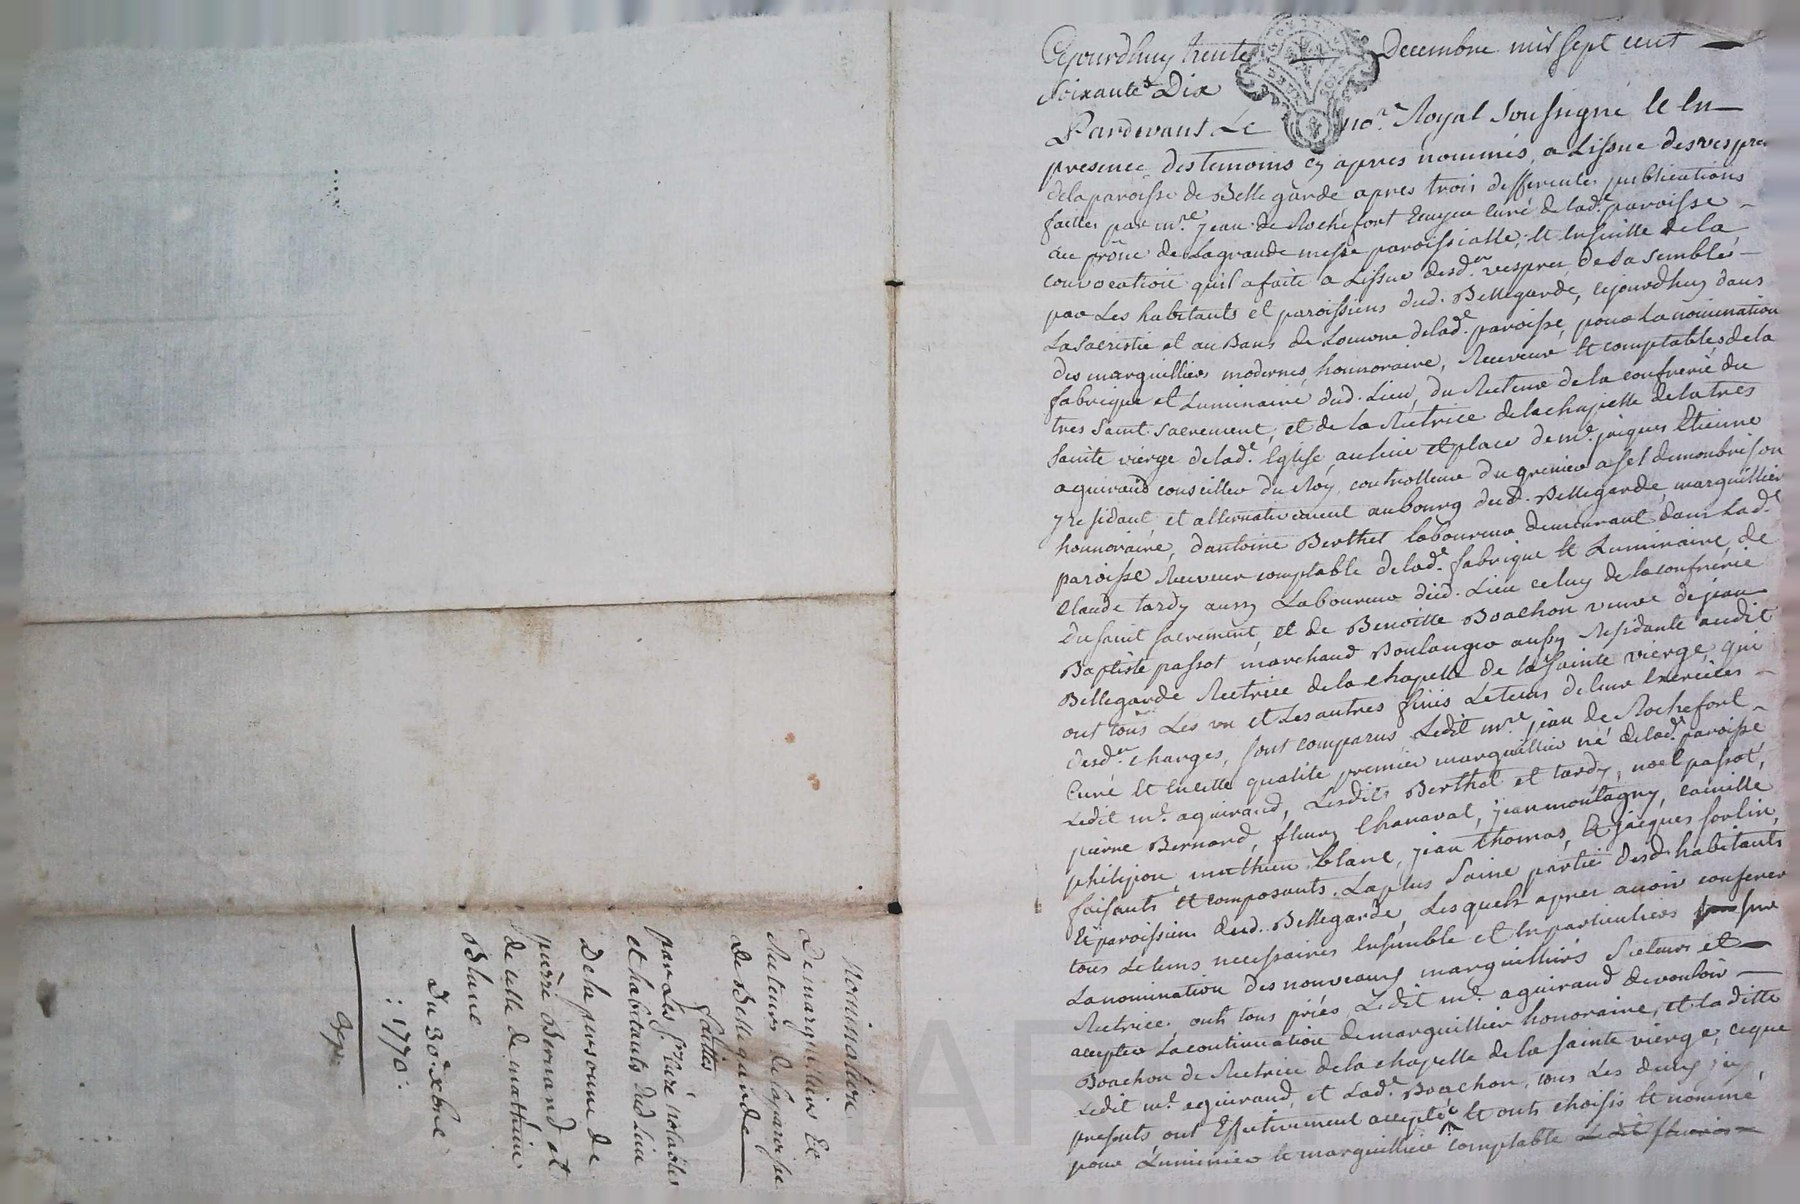 Cejourdhuy trente Decembre mil sept cent
soixante Dix
Pardevant Le no.re Royal soussigné et en
presence des temoins cy apres nommés, a Lissue des vespres
de la paroisse de Bellegarde apres trois differentes publications
faittes par m.re jean de Rochefort Ecuyer curé de lad.e paroisse
au prône de Lagrande messe paroissialle, et ensuitte de la
convocation quil a faite a Lissue desd.es vespres de sa semblés
par Les habitants et paroissiens dud. Bellegarde, cejourdhuy dans
La sacristie et au Banc de Loeuvre delad.e paroisse, pour La nomination
des marguilliers modernes, honnoraire, Receveur et comptables de la
fabrique et Luminaire dud. Lieu, du Recteur de la confrerie du
tres saint sacrement, et de la Rectrice de la chapelle de la tres
sainte vierge de lad.e Eglise, au lieu et place de m.e jacques Etienne
aguiraud conseiller du Roy, controlleur du grenier a sel de montbrison
y residant et alternativement au bourg dud. Bellegarde, marguillier
honnoraire, d'antoine Berthet laboureur demeurant dans Lad.e
paroisse Receveur comptable de lad.e fabrique et Luminaire, de
Claude tardy aussy Laboureur dud. Lieu celuy de la confrérie
du saint sacrement, et de Benoitte Boachon veuve de jean
Baptiste passot marchand Boulanger aussy Residante audit
Bellegarde Rectrice de la chapelle de la sainte vierge, qui
ont tous Les un et Les autres finis Le tems de leur Exercices
desd.es charges, sont comparus Ledit m.re jean de Rochefort
Curé et en cette qualité premier marguillier né de lad.e paroisse
Ledit m.e aguiraud, Lesdits Berthet et tardy, noel passot,
pierre Bernard, fleury Chanaval, jean montagny, camille
philipon, mathieu Blanc, jean thomas, et jacques forlin,
faisants et composants La plus saine partie desd. habitants
Et paroissiens dud. Bellegarde, Lesquels apres avoir conferés
tous Le tems necessaires Ensemble et En particuliers sur
La nomination des nouveaux marguilliers Recteurs et
Rectrice, onts tous priés Ledit m.e aguiraud de vouloir
accepter La continuation de marguillier honoraire, et laditte
Boachon de Rectrice de la chapelle de la sainte vierge, ce que
Ledit m.e aguiraud, et Lad.e Boachon, tous Les deux icy
presents ont Effectivement accepté et onts choisis et nommé
pour Luminier et marguillier comptable
Nomination
De marguilliers Et
Recteurs de la paroisse
de Bellegarde
faittes
par Les s.rs curé notables
et habitants dud Lieu
De la personne de
pierre Bernard et
de celle de mathieu
Blanc
du 30e xbre
: 1770 :